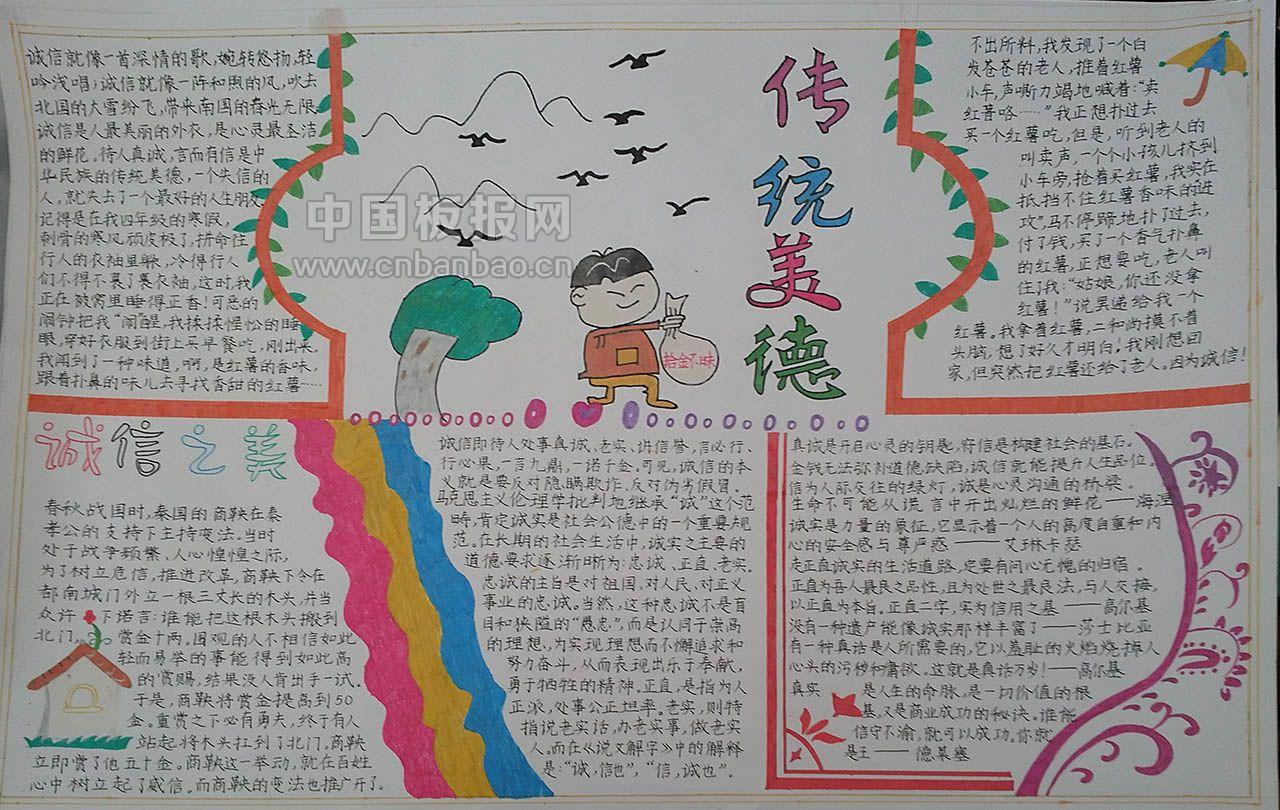 诚信就像一首深情的歌,婉转悠扬,轻
吟浅唱;诚信就像一阵和煦的风,吹去
北国的大雪纷飞,带来南国的春光无限;
诚信是人最美丽的外衣,是心灵最圣洁
的鲜花。待人真诚,言而有信是中
华民族的传统美德,一个失信的
人,就失去了一个最好的人生朋友
记得是在我四年级的寒假,
刺骨的寒风顽皮极了,拼命往
行人的衣袖里躲,冷得行人
们不得不裹了裹衣袖,这时,我
正在被窝里睡得正香!可恶的
闹钟把我“闹”醒,我揉揉惺忪的睡
眼,穿好衣服到街上买早餐吃,刚出来,
我闻到了一种味道,啊,是红薯的香味,
跟着扑鼻的味儿去寻找香甜的红薯……
传统美德
中国板报网
www.cnbanbao.cn
拾金不昧
不出所料,我发现了一个白
发苍苍的老人,推着红薯
小车,声嘶力竭地喊着:“卖
红薯咯……”我正想扑过去
买一个红薯吃,但是,听到老人的
叫卖声,一个个小孩儿挤到
小车旁,抢着买红薯,我实在
抵挡不住红薯香味的进
攻,马不停蹄地扑了过去,
付了钱,买了一个香气扑鼻
的红薯,正想要吃,老人叫
住了我:“姑娘,你还没拿
红薯!”说罢递给我一个
红薯。我拿着红薯,二和尚摸不着
头脑,想了好久才明白!我刚想回
家,但突然把红薯还给了老人。因为诚信!
诚信之美
春秋战国时,秦国的商鞅在秦
孝公的支持下主持变法。当时
处于战争频繁、人心惶惶之际,
为了树立危信,推进改革,商鞅下令在
都南城门外立一根三丈长的木头,并当
众许下诺言:谁能把这根木头搬到
北门,赏金十两。围观的人不相信如此
轻而易举的事能得到如此高
的赏赐,结果没人肯出手一试。
于是,商鞅将赏金提高到50
金。重赏之下必有勇夫,终于有人
站起将木头扛到了北门。商鞅
立即赏了他五十金。商鞅这一举动,就在百姓
心中树立起了威信。而商鞅的变法也推广开了。
诚信即待人处事真诚、老实、讲信誉,言必行、
行必果,一言九鼎,一诺千金。可见,诚信的本
义就是要反对隐瞒欺诈、反对伪劣假冒。
马克思主义伦理学批判地继承“诚”这个范
畴,肯定诚实是社会公德中的一个重要规
范。在长期的社会生活中,诚实之主要的
道德要求逐渐晰为:忠诚、正直、老实。
忠诚的主旨是对祖国、对人民、对正义
事业的忠诚。当然,这种忠诚不是盲
目和狭隘的“愚忠”,而是认同于崇高
的理想,为实现理想而不懈追求和
努力奋斗,从而表现出乐于奉献,
勇于牺牲的精神。正直,是指为人
正派,处事公正坦率。老实,则特
指说老实话,办老实事,做老实
人。而在《说文解字》中的解释
是:“诚,信也”,“信,诚也”。
真诚是开启心灵的钥匙,府信是构建社会的基石。
金钱无法弥补道德缺陷,诚信就能提升人生品位。
信为人际交往的绿灯,诚是心灵沟通的桥梁。
生命不可能从谎言中开出灿烂的鲜花——海涅
诚实是力量的象征,它显示着一个人的高度自重和内
心的安全感与尊严感———艾琳卡瑟
走正直诚实的生活道路,定要有问心无愧的归宿。
正直为吾人最良之品性,且为处世之最良法,与人交接,
以正直为本旨。正直二字,实为信用之基——高尔基
没有一种遗产能像诚实那样丰富了——莎士比亚
有一种真话是人所需要的,它以羞耻的火焰烧掉人
心头的污秽和庸欲。这就是真话万岁!——高尔基
真实是人生的命脉,是一切价值的根
基,又是商业成功的秘诀。谁能
信守不渝,就可以成功。你就
是王——德莱塞